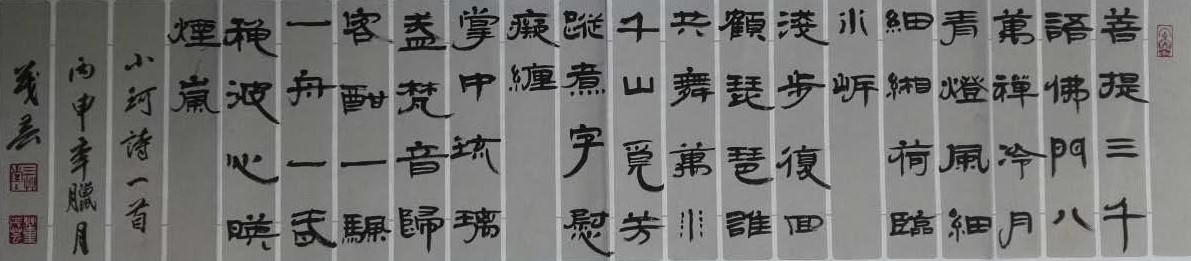 菩提三千
語佛門八
萬禪冷月
青燈風細
細緗荷臨
小岍
淺步復回
顧琵琶誰
共舞萬川
千山覓芳
蹤煮字慰
癡纏
掌中琉璃
盞梵音歸
客酣一
一舟一
波心映
煙嵐
小珂詩一首
丙申年臘月